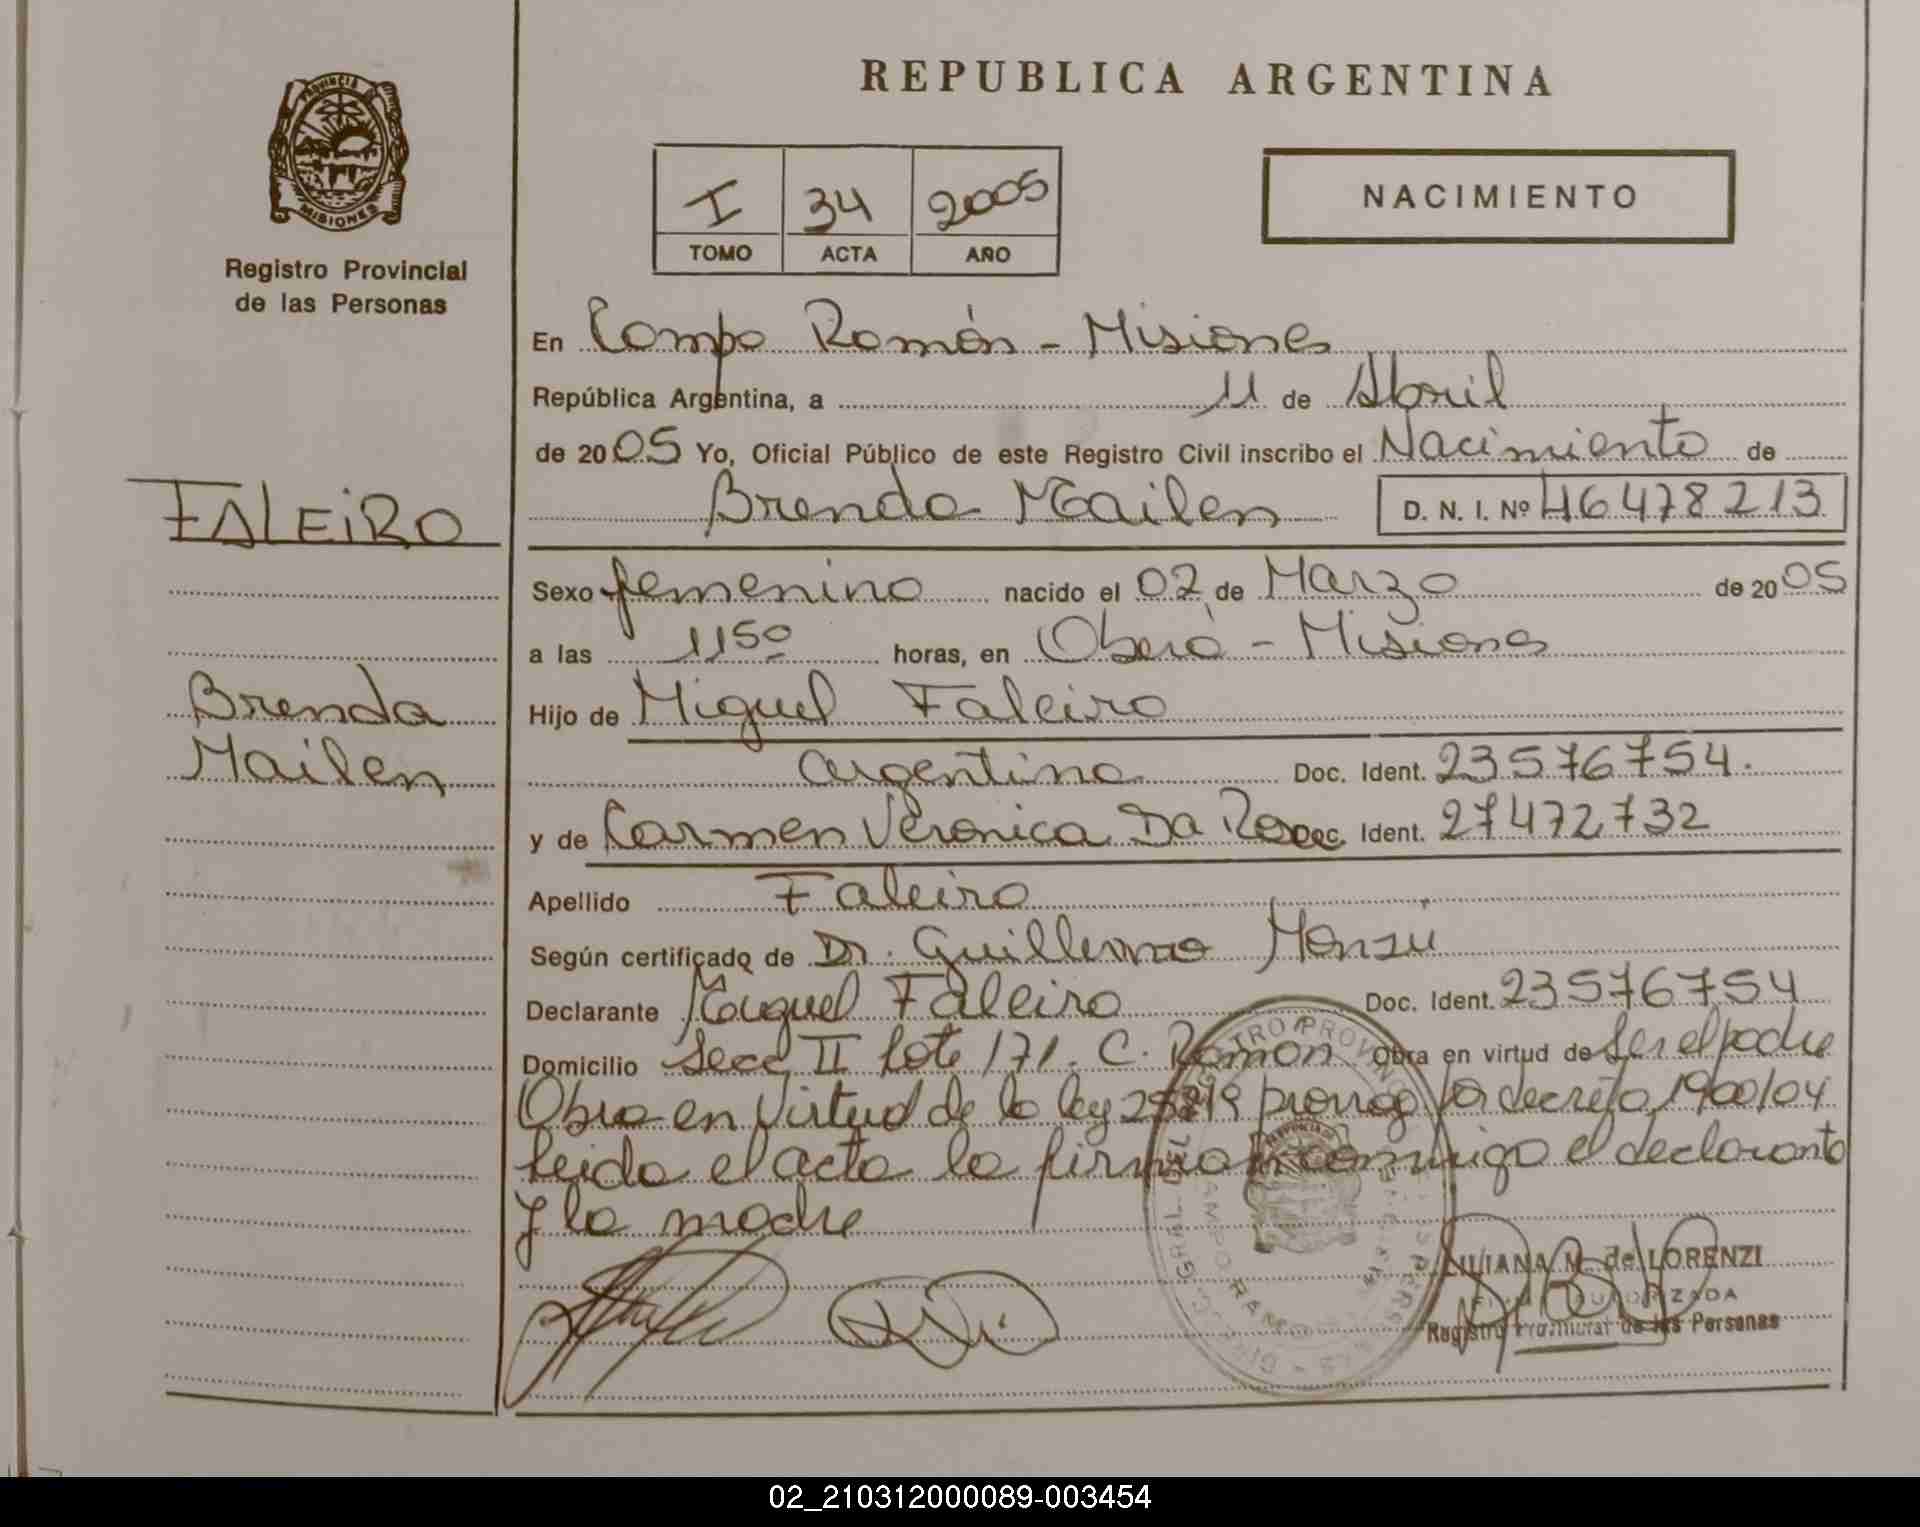 PROVINCIA DE
MISIONES
Registro Provincial
de las Personas
FALEIRO
Brenda
Mailen
REPUBLICA ARGENTINA
I 34 2005
TOMO ACTA AÑO
NACIMIENTO
En Campo Ramón - Misiones
República Argentina, a 11 de Abril
de 2005 Yo, Oficial Público de este Registro Civil inscribo el Nacimiento de
Brenda Mailen D. N. I. Nº 46478213
Sexo femenino nacido el 02 de Marzo de 2005
a las 1150 horas, en Oberá - Misiones
Hijo de Miguel Faleiro
argentino Doc. Ident. 23576754.
y de Carmen Veronica Da Rosa Doc. Ident. 27472732
Apellido Faleiro
Según certificado de Dr. Guillermo Monzú
Declarante Miguel Faleiro Doc. Ident. 23576754
Domicilio Secc II Lote 171. C. Ramón Obra en virtud de Ser el padre
Obra en virtud de la ley 25819 prorrog por decreto 1900/04
Leida el acta la firman conmigo el declarante
y la madre
LILIANA M. de LORENZI
FIRMA AUTORIZADA
Registro Provincial de las Personas
02_210312000089-003454